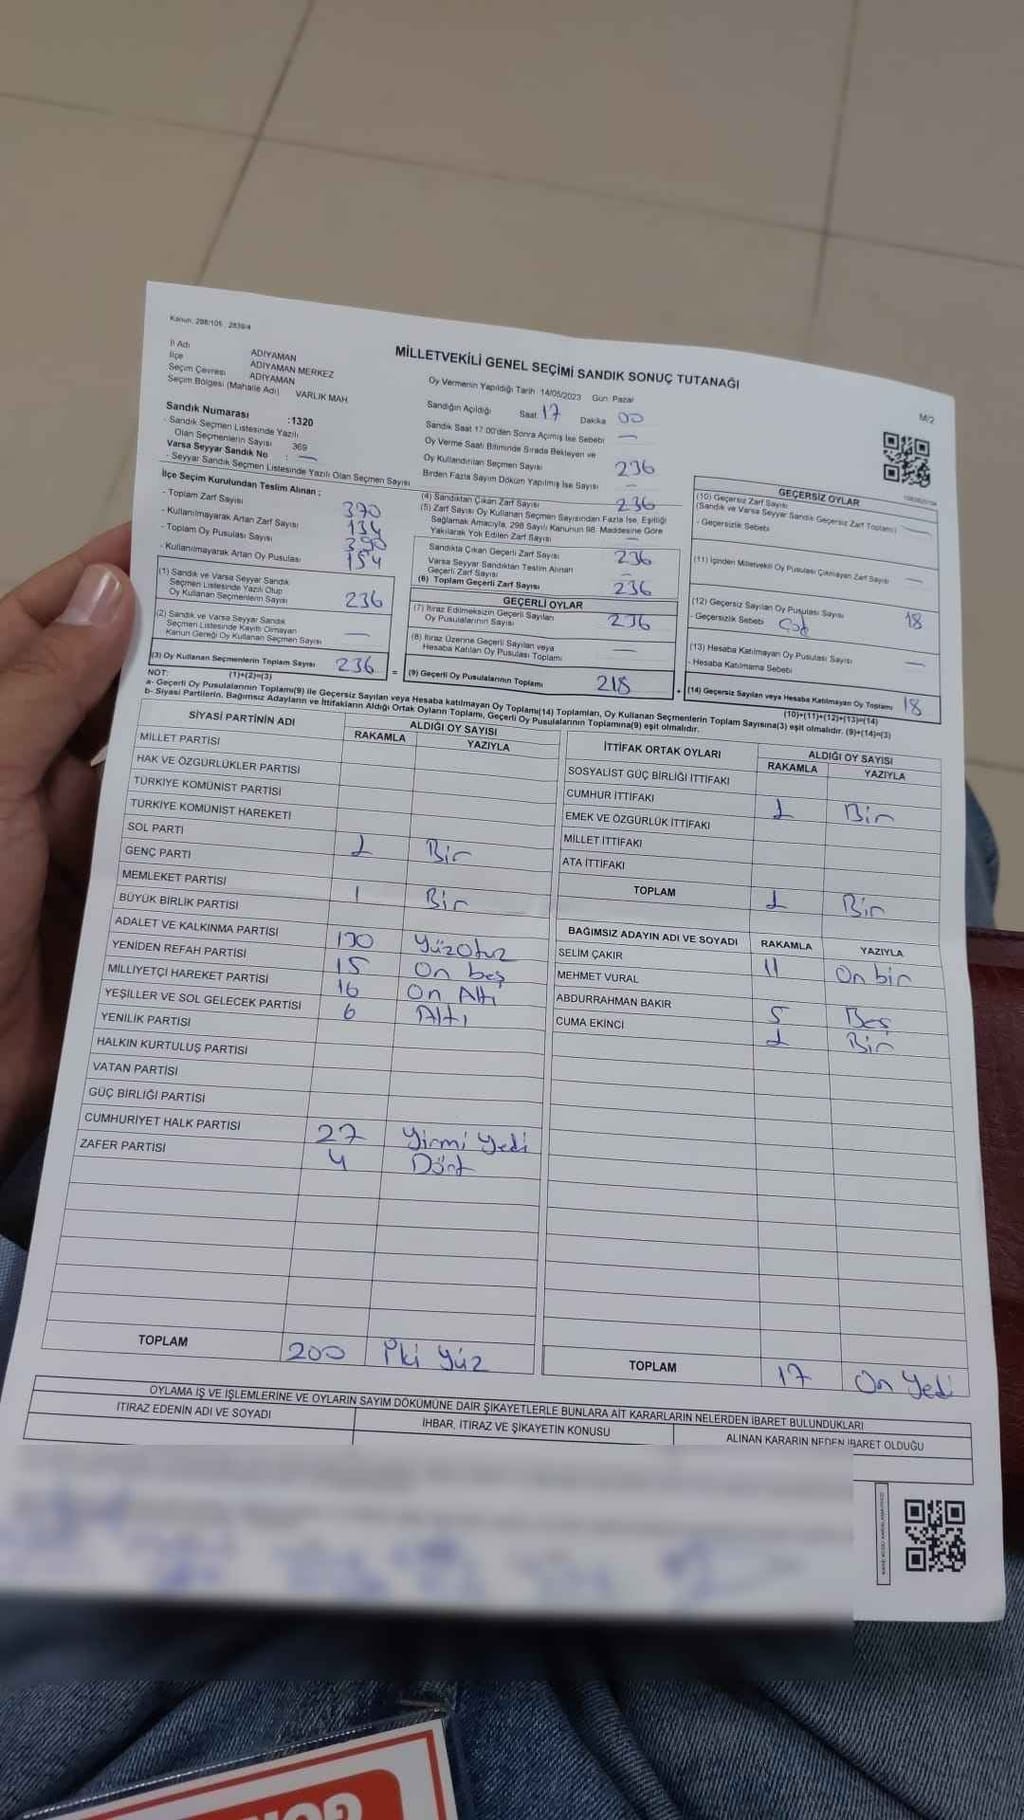 Kanun: 298/105 , 2839/4
MİLLETVEKİLİ GENEL SEÇİMİ SANDIK SONUÇ TUTANAĞI
M/2
İl Adı ADIYAMAN
İlçe ADIYAMAN MERKEZ
Seçim Çevresi ADIYAMAN
Seçim Bölgesi (Mahalle Adı) VARLIK MAH.
Oy Vermenin Yapıldığı Tarih 14/05/2023 Gün: Pazar
Sandığın Açıldığı Saat 17 Dakika 00
Sandık Saat 17.00'den Sonra Açılmış İse Sebebi —
Oy Verme Saati Bitiminde Sırada Bekleyen ve
Oy Kullandırılan Seçmen Sayısı 236
Birden Fazla Sayım Döküm Yapılmış İse Sayısı —
Sandık Numarası :1320
- Sandık Seçmen Listesinde Yazılı
Olan Seçmenlerin Sayısı 369
Varsa Seyyar Sandık No : —
- Seyyar Sandık Seçmen Listesinde Yazılı Olan Seçmen Sayısı
İlçe Seçim Kurulundan Teslim Alınan :
- Toplam Zarf Sayısı 370
- Kullanılmayarak Artan Zarf Sayısı 134
- Toplam Oy Pusulası Sayısı
- Kullanılmayarak Artan Oy Pusulası 154
(1) Sandık ve Varsa Seyyar Sandık
Seçmen Listesinde Yazılı Olup
Oy Kullanan Seçmenlerin Sayısı 236
(2) Sandık ve Varsa Seyyar Sandık
Seçmen Listesinde Kayıtlı Olmayan
Kanun Gereği Oy Kullanan Seçmen Sayısı —
(3) Oy Kullanan Seçmenlerin Toplam Sayısı 236 =
(1)+(2)=(3)
(4) Sandıktan Çıkan Zarf Sayısı 236
(5) Zarf Sayısı Oy Kullanan Seçmen Sayısından Fazla İse, Eşitliği
Sağlamak Amacıyla, 298 Sayılı Kanunun 98. Maddesine Göre
Yakılarak Yok Edilen Zarf Sayısı —
Sandıkta Çıkan Geçerli Zarf Sayısı 236
Varsa Seyyar Sandıktan Teslim Alınan
Geçerli Zarf Sayısı —
(6) Toplam Geçerli Zarf Sayısı 236
GEÇERLİ OYLAR
(7) İtiraz Edilmeksizin Geçerli Sayılan
Oy Pusulalarının Sayısı 236
(8) İtiraz Üzerine Geçerli Sayılan veya
Hesaba Katılan Oy Pusulası Toplamı —
(9) Geçerli Oy Pusulalarının Toplamı 218 +
GEÇERSİZ OYLAR
(10) Geçersiz Zarf Sayısı
(Sandık ve Varsa Seyyar Sandık Geçersiz Zarf Toplamı) —
- Geçersizlik Sebebi
(11) İçinden Milletvekili Oy Pusulası Çıkmayan Zarf Sayısı —
(12) Geçersiz Sayılan Oy Pusulası Sayısı 18
- Geçersizlik Sebebi
(13) Hesaba Katılmayan Oy Pusulası Sayısı —
- Hesaba Katılmama Sebebi
(14) Geçersiz Sayılan veya Hesaba Katılmayan Oy Toplamı 18
(10)+(11)+(12)+(13)=(14)
NOT:
a- Geçerli Oy Pusulalarının Toplamı(9) ile Geçersiz Sayılan veya Hesaba katılmayan Oy Toplamı(14) Toplamları, Oy Kullanan Seçmenlerin Toplam Sayısına(3) eşit olmalıdır. (9)+(14)=(3)
b- Siyasi Partilerin, Bağımsız Adayların ve İttifakların Aldığı Ortak Oyların Toplamı, Geçerli Oy Pusulalarının Toplamına(9) eşit olmalıdır.
SİYASİ PARTİNİN ADI ALDIĞI OY SAYISI
RAKAMLA YAZIYLA
MİLLET PARTİSİ
HAK VE ÖZGÜRLÜKLER PARTİSİ
TÜRKİYE KOMÜNİST PARTİSİ
TÜRKİYE KOMÜNİST HAREKETİ
SOL PARTİ
GENÇ PARTİ 1 Bir
MEMLEKET PARTİSİ
BÜYÜK BİRLİK PARTİSİ 1 Bir
ADALET VE KALKINMA PARTİSİ 130 Yüzotuz
YENİDEN REFAH PARTİSİ 15 On beş
MİLLİYETÇİ HAREKET PARTİSİ 16 On Altı
YEŞİLLER VE SOL GELECEK PARTİSİ 6 Altı
YENİLİK PARTİSİ
HALKIN KURTULUŞ PARTİSİ
VATAN PARTİSİ
GÜÇ BİRLİĞİ PARTİSİ
CUMHURİYET HALK PARTİSİ 27 Yirmi Yedi
ZAFER PARTİSİ 4 Dört
TOPLAM 200 İki Yüz
İTTİFAK ORTAK OYLARI ALDIĞI OY SAYISI
RAKAMLA YAZIYLA
SOSYALİST GÜÇ BİRLİĞİ İTTİFAKI
CUMHUR İTTİFAKI 1 Bir
EMEK VE ÖZGÜRLÜK İTTİFAKI
MİLLET İTTİFAKI
ATA İTTİFAKI
TOPLAM 1 Bir
BAĞIMSIZ ADAYIN ADI VE SOYADI RAKAMLA YAZIYLA
SELİM ÇAKIR 11 On bir
MEHMET VURAL
ABDURRAHMAN BAKIR 5 Beş
CUMA EKİNCİ 1 Bir
TOPLAM 17 On Yedi
OYLAMA İŞ VE İŞLEMLERİNE VE OYLARIN SAYIM DÖKÜMÜNE DAİR ŞİKAYETLERLE BUNLARA AİT KARARLARIN NELERDEN İBARET BULUNDUKLARI
İTİRAZ EDENİN ADI VE SOYADI İHBAR, İTİRAZ VE ŞİKAYETİN KONUSU ALINAN KARARIN NEDEN İBARET OLDUĞU